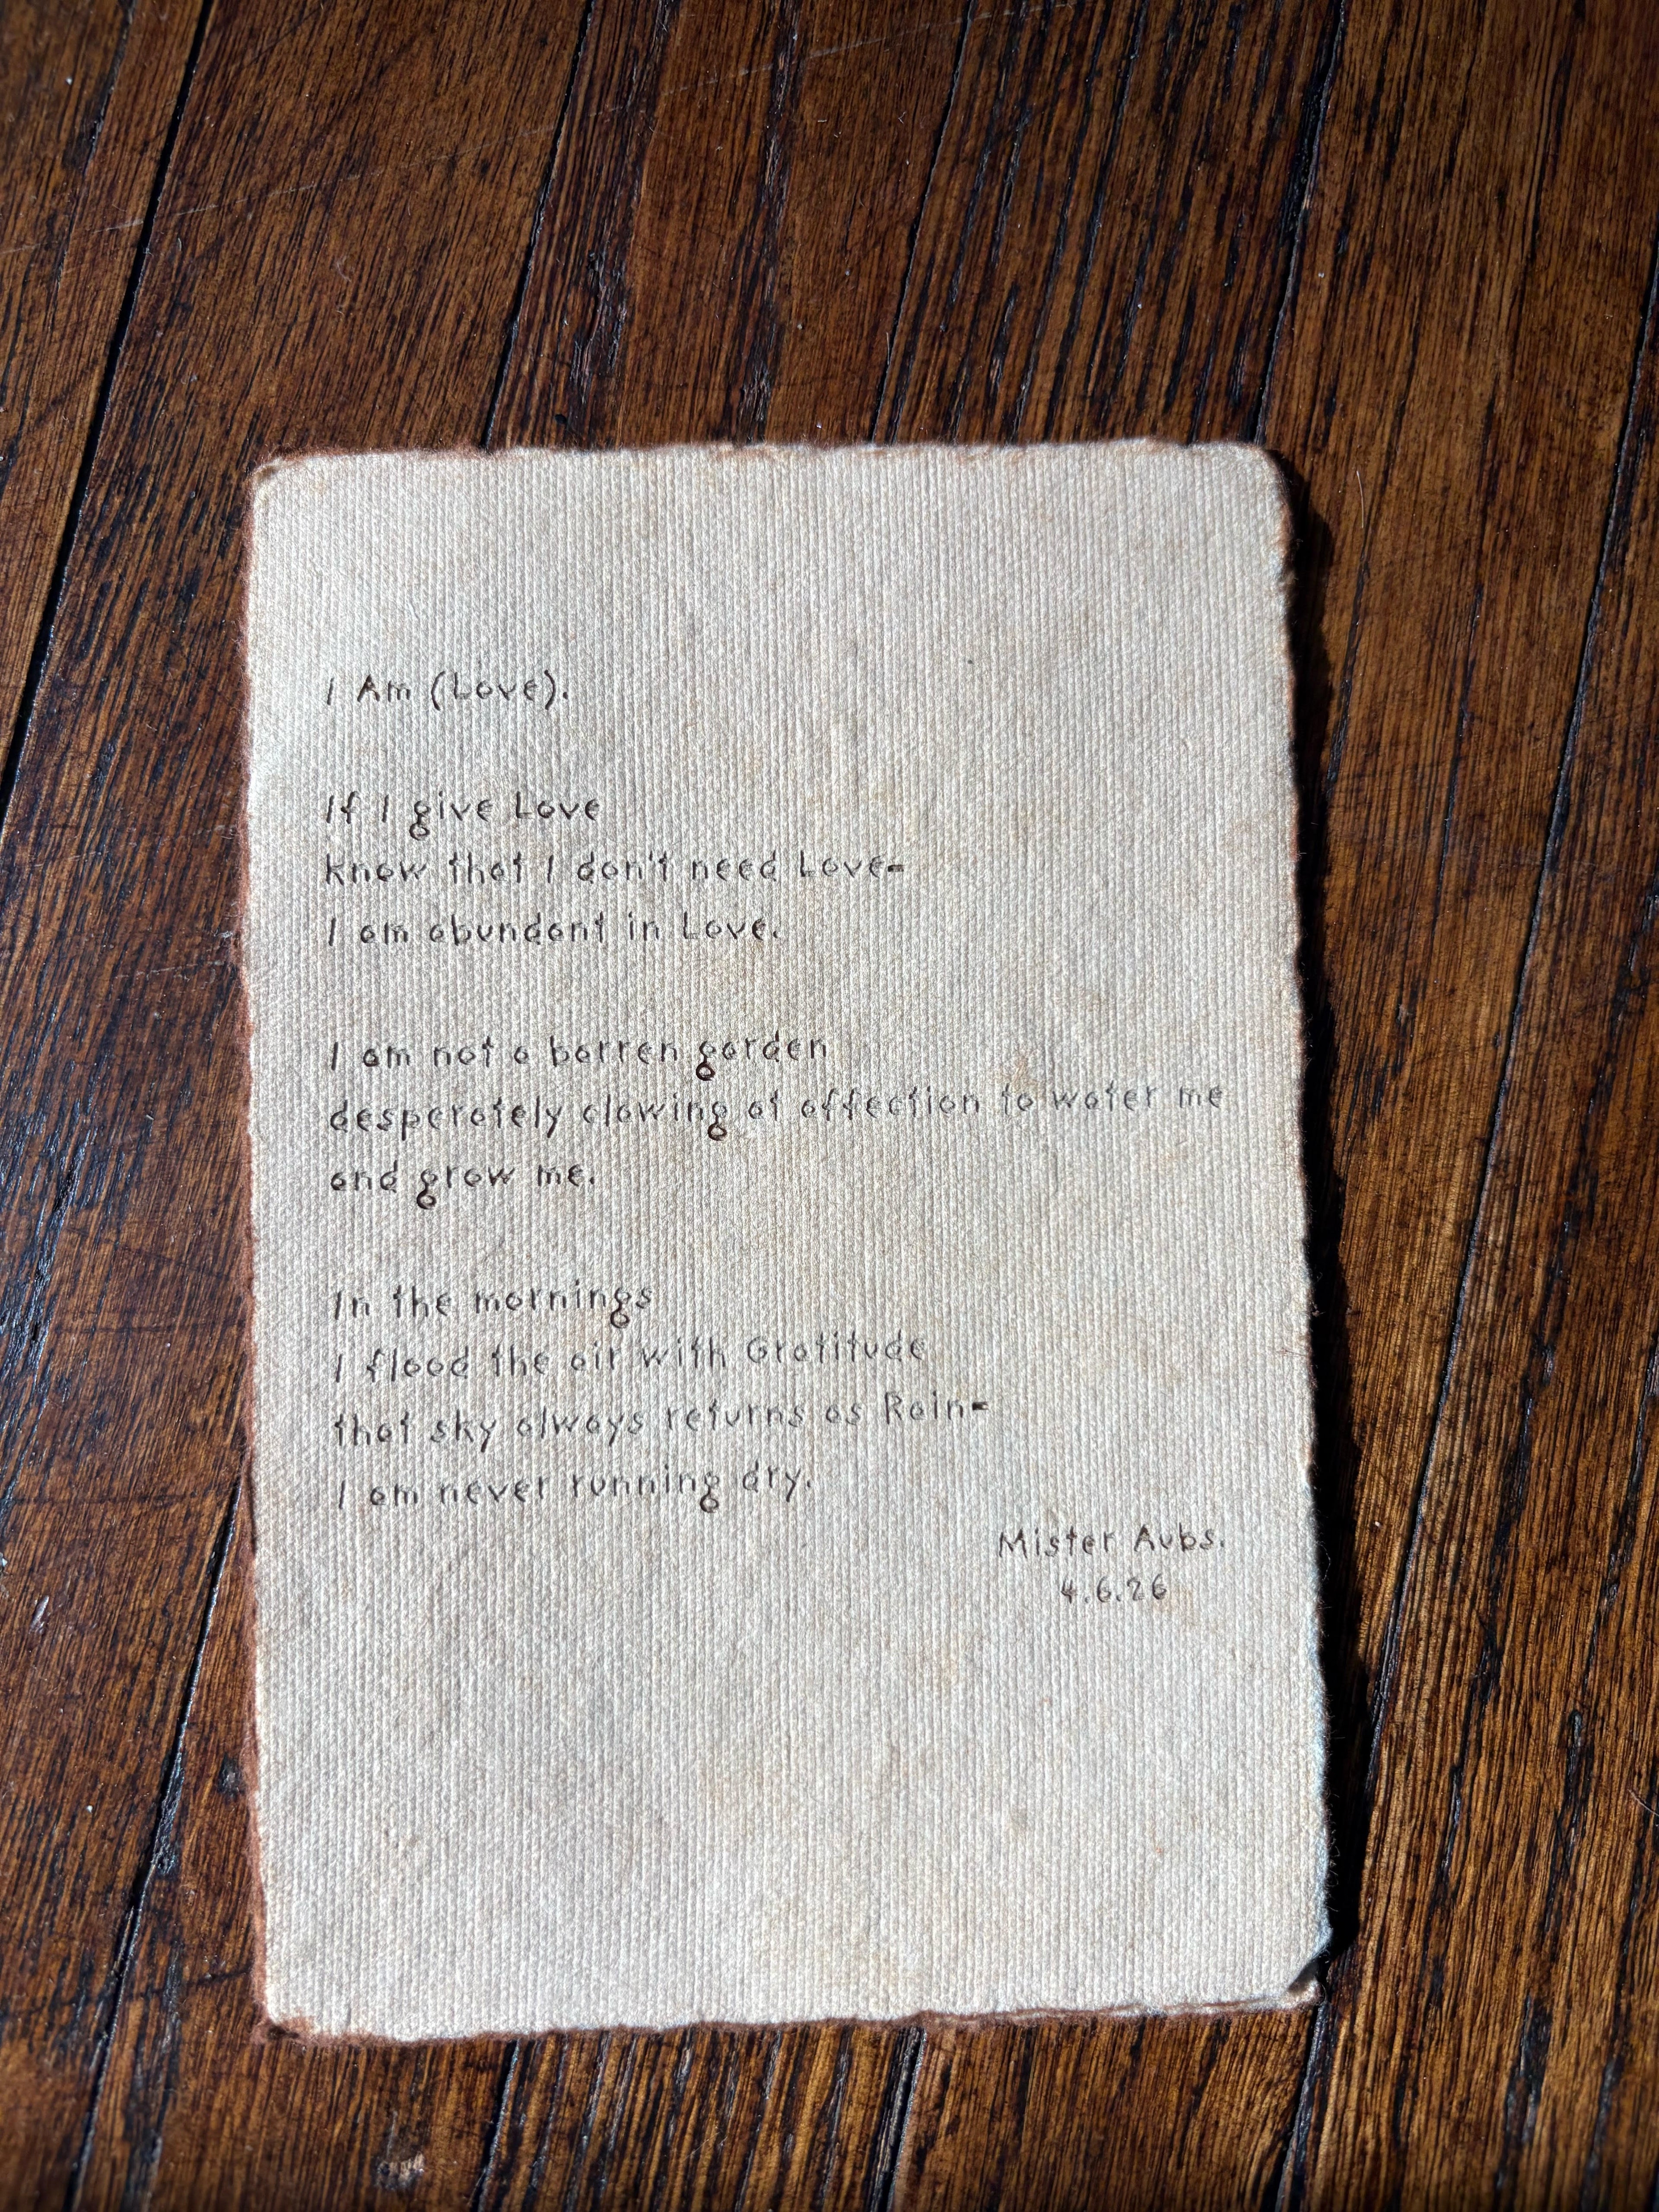 I Am (Love).
If I give Love
know that I don't need Love-
I am abundant in Love.
I am not a barren garden
desperately clawing at affection to water me
and grow me.
In the mornings
I flood the air with Gratitude
that sky always returns as Rain-
I am never running dry.
Mister Aubs.
4.6.26